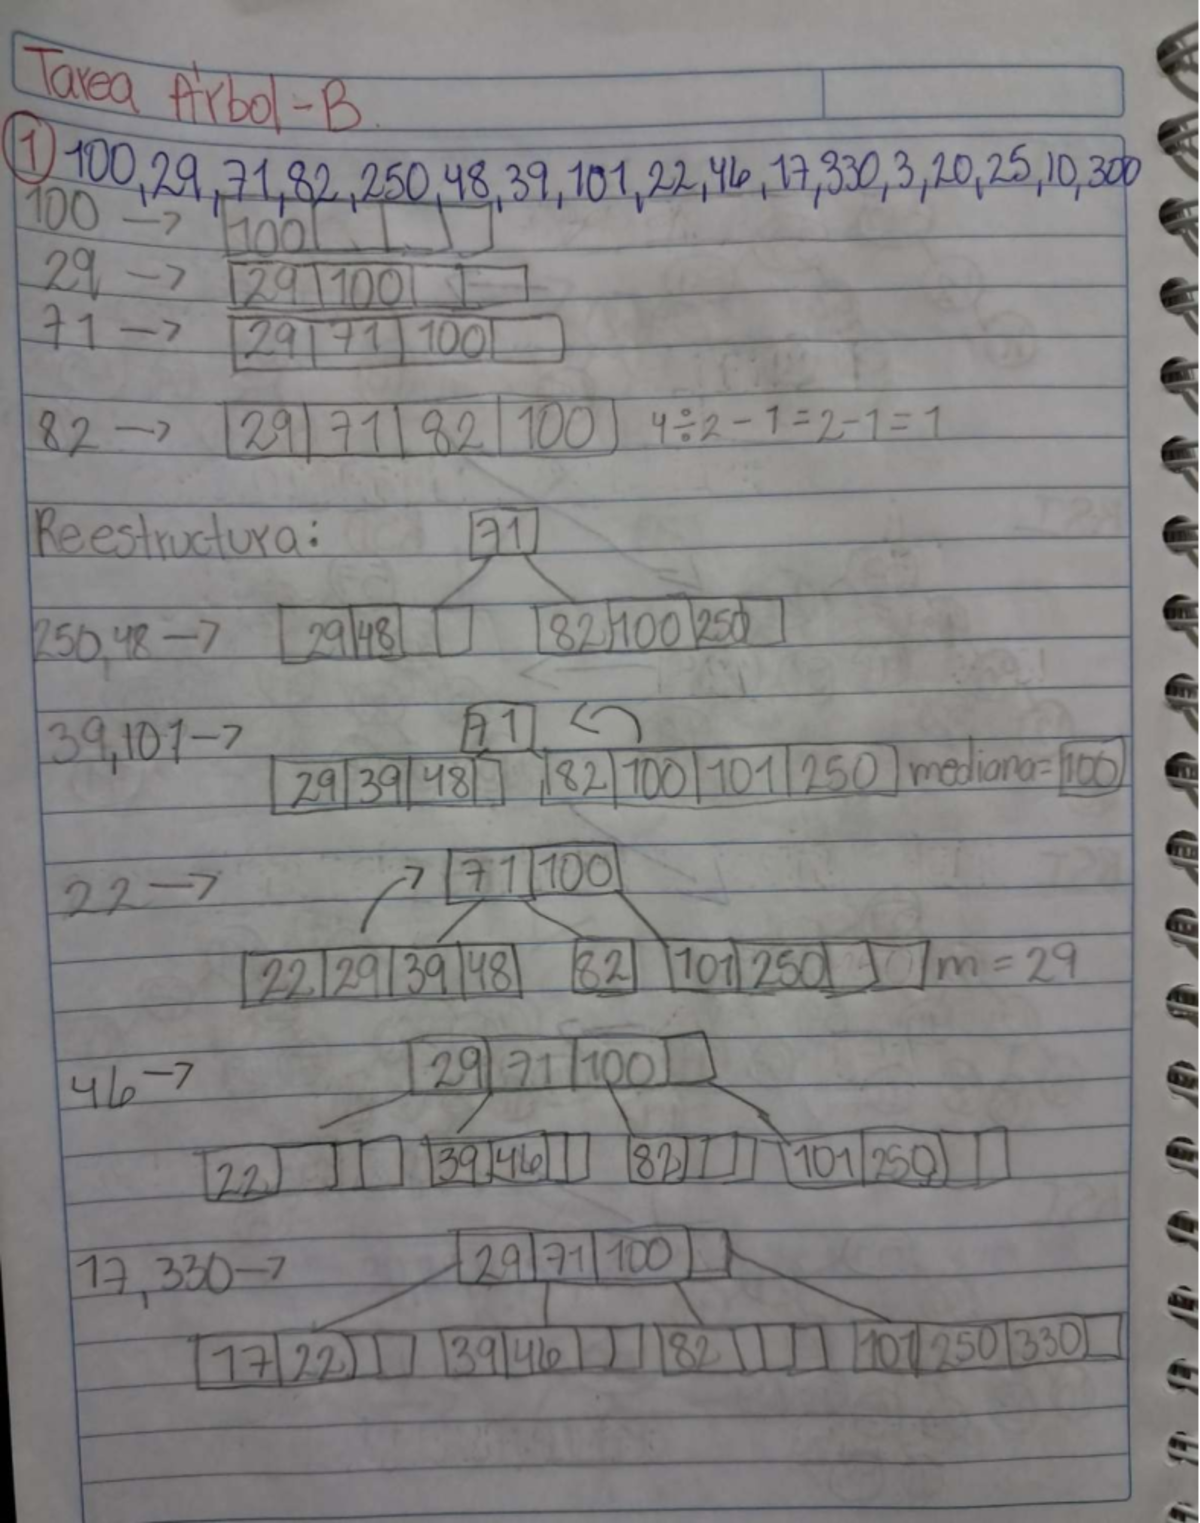 Tarea Árbol-B.
1 100,29,71,82,250,48,39,101,22,46,17,330,3,20,25,10,300
100 → 100
29 → 29 100
71 → 29 71 100
82 → 29 71 82 100 4÷2-1=2-1=1
Reestructura: 71
250,48 → 29 48 82 100 250
39,101 → 71
29 39 48 82 100 101 250 mediana=100
22 → 71 100
22 29 39 48 82 101 250 m=29
46 → 29 71 100
22 39 46 82 101 250
17,330 → 29 71 100
17 22 39 46 82 101 250 330